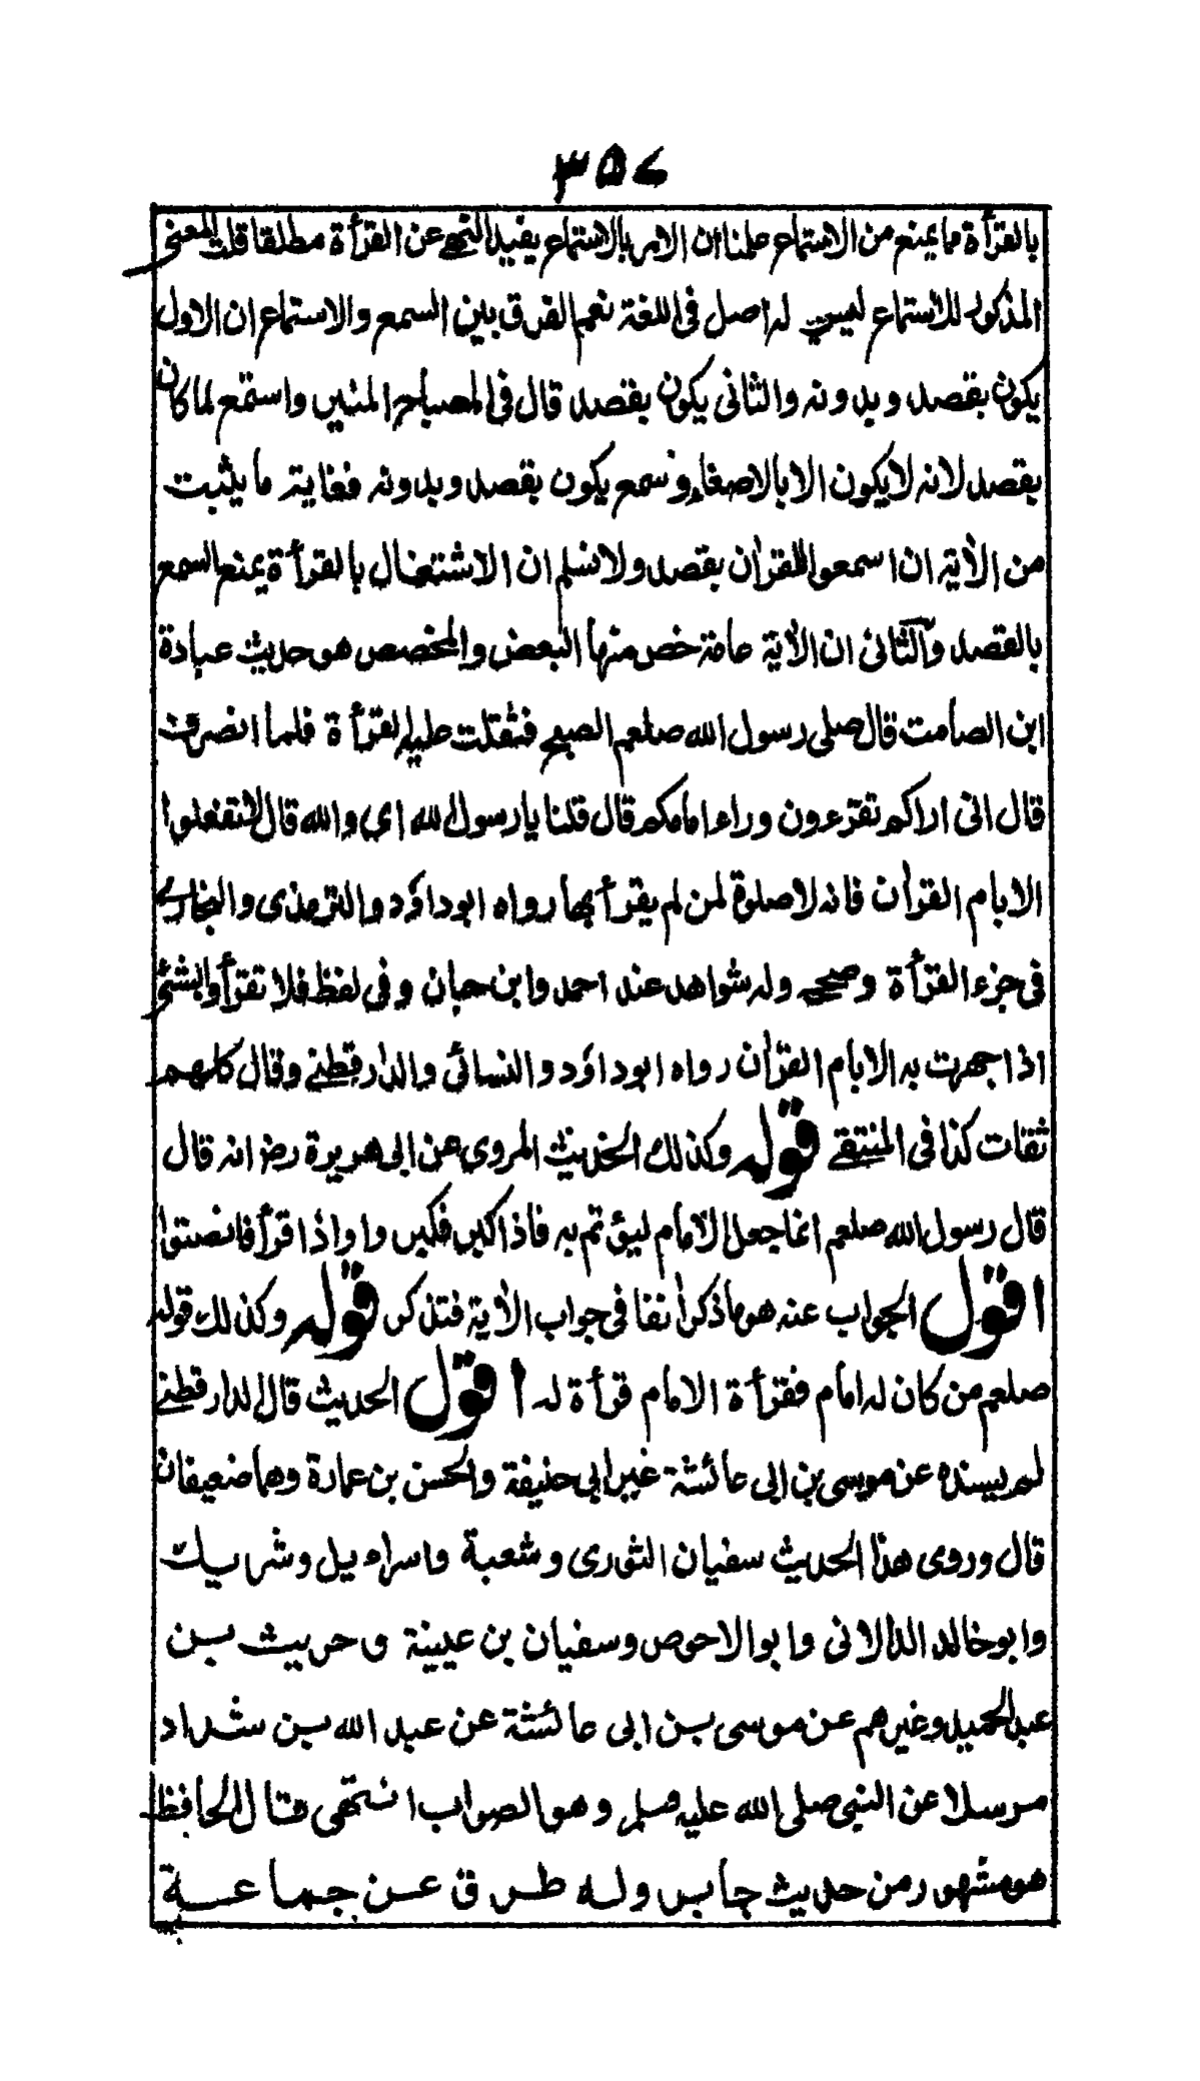 ٣٥٧
بالقرأة مما يمنع من الاستماع علمنا ان الامر بالاستماع يفيد النهي عن القرأة مطلقا قلت المعنى
المذكور للاستماع ليس له اصل فى اللغة نعم الفرق بين السمع والاستماع ان الاول
يكون بقصد وبدونه والثانى يكون بقصد قال فى المصباح المنير واستمع لما كان
بقصد لانه لا يكون الا بالاصغاء وسمع يكون بقصد وبدونه فغاية ما يثبت
من الاٰية ان اسمعوا للقراٰن بقصد ولا نسلم ان الاشتغال بالقرأة يمنع السمع
بالقصد والثانى ان الاٰية عامة خص منها البعض والمخصص هو حديث عبادة
ابن الصامت قال صلى رسول الله صلعم الصبح فثقلت عليه القرأة فلما انصرف
قال انى اراكم تقرءون وراء امامكم قال قلنا يا رسول الله اي والله قال لا تفعلوا
الا بام القراٰن فانه لا صلوة لمن لم يقرأ بها رواه ابو داؤد والترمذى والبخاري
فى جزء القرأة وصححه وله شواهد عند احمد وابن حبان وفى لفظ فلا تقرأوا بشئ
اذا جهرت به الا بام القراٰن رواه ابو داؤد والنسائى والدارقطنے وقال كلهم
ثقات كذا فى المنتقے قوله وكذلك الحديث المروى عن ابى هريرة رضـ انه قال
قال رسول الله صلعم انما جعل الامام ليؤتم به فاذا كبر فكبروا واذا قرأ فانصتوا
اقول الجواب عنه هو ما ذكر اٰنفا فى جواب الاٰية فتذكر قوله وكذلك قوله
صلعم من كان له امام فقرأة الامام قرأة له اقول الحديث قال الدارقطنے
لم يسنده عن موسى بن ابى عائشة غير ابي حنيفة والحسن بن عمارة وهما ضعيفان
قال وروى هذا الحديث سفيان الثورى وشعبة واسراءيل وشريك
وابو خالد الدالانى وابو الاحوص وسفيان بن عيينة وحريث بن
عبد الحميد وغيرهم عن موسى بن ابى عائشة عن عبد الله بن شداد
مرسلا عن النبى صلى الله عليه وسلم وهو الصواب انتهى قال الحافظ
هو مشهور من حديث جابر وله طرق عن جماعة